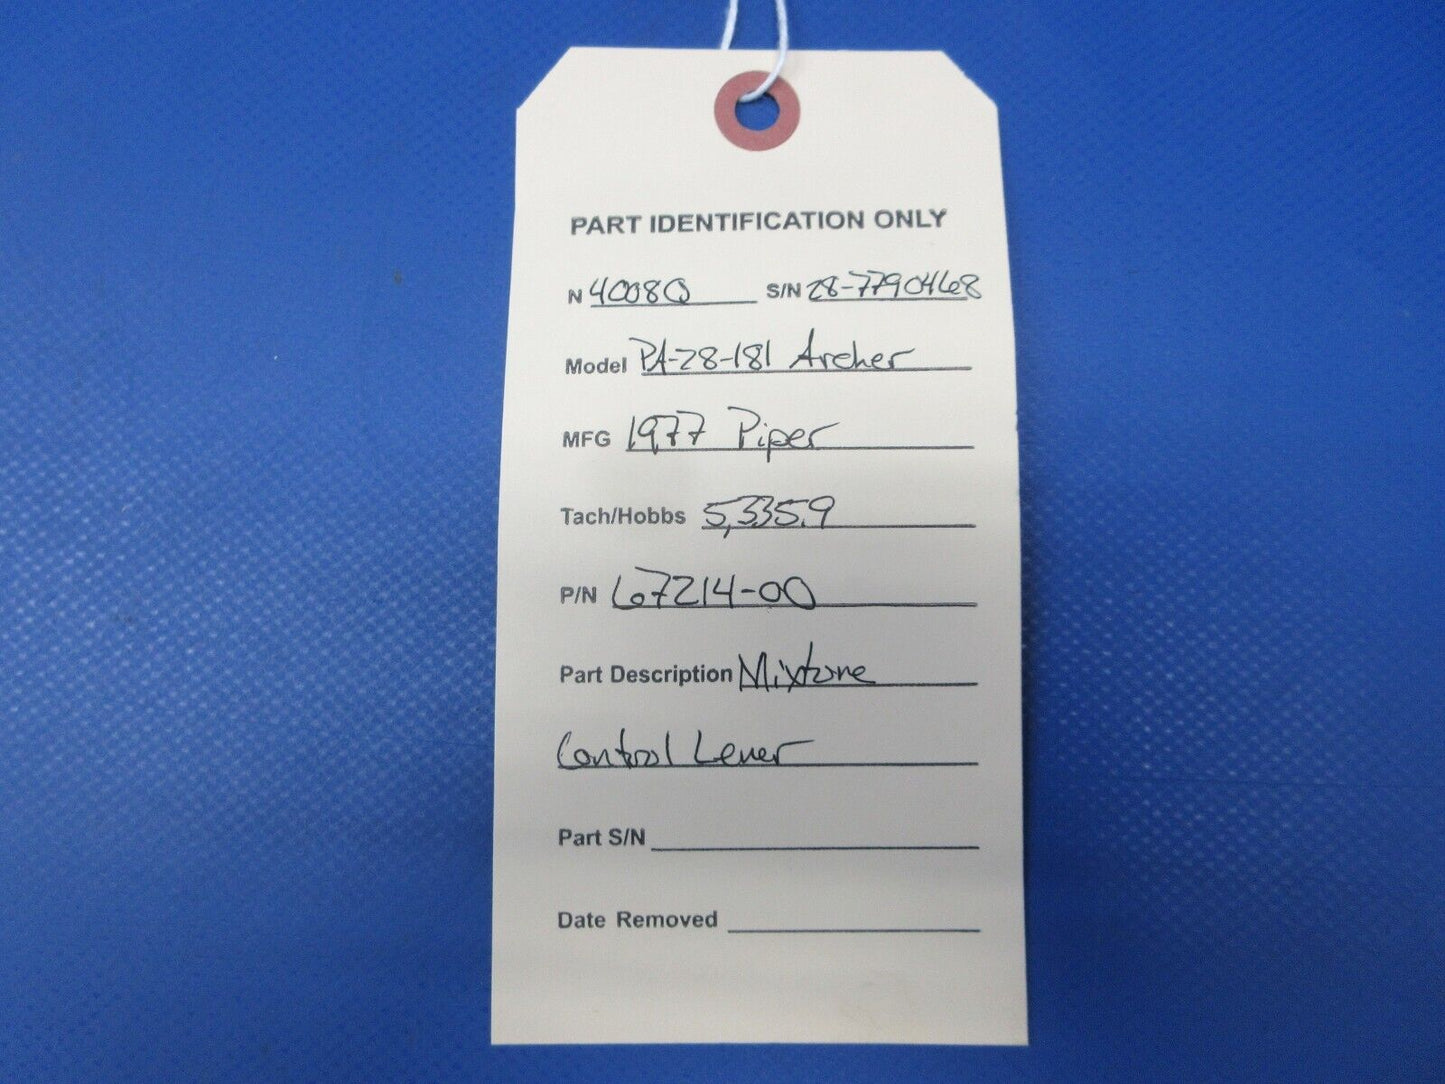 PART IDENTIFICATION ONLY
N 4008Q S/N 28-7790468
Model PA-28-181 Archer
MFG 1977 Piper
Tach/Hobbs 5,335.9
P/N 67214-00
Part Description Mixture
Control Lever
Part S/N
Date Removed